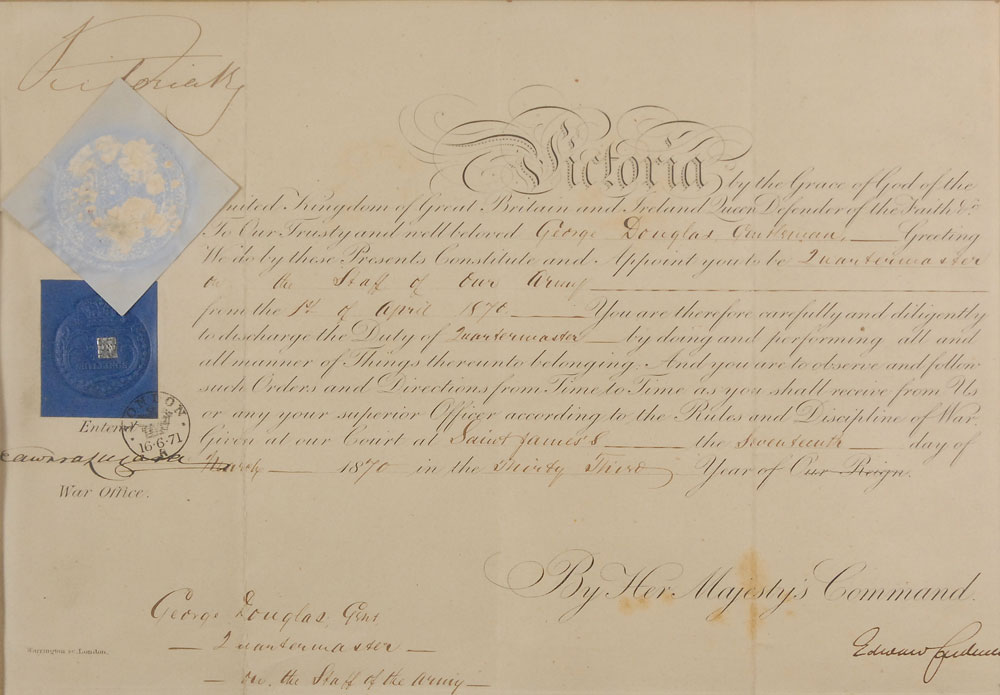 Victoria R
Victoria by the Grace of God of the
United Kingdom of Great Britain and Ireland Queen, Defender of the Faith &c.
To Our Trusty and well beloved George Douglas, Gentleman, Greeting
We do by these Presents Constitute and Appoint you to be Quartermaster
on the Staff of Our Army
from the 1st of April 1870. You are therefore carefully and diligently
to discharge the Duty of Quartermaster by doing and performing all and
all manner of Things thereunto belonging. And you are to observe and follow
such Orders and Directions from Time to Time as you shall receive from Us
or any your superior Officer according to the Rules and Discipline of War.
Given at our Court at Saint James's the Seventeenth day of
March 1870 in the Thirty Third Year of Our Reign.
Enterd
LONDON
16·6·71
War Office.
By Her Majesty's Command.
Edward
George Douglas, Gent
Quartermaster
on the Staff of the Army
Warrington sc. London.